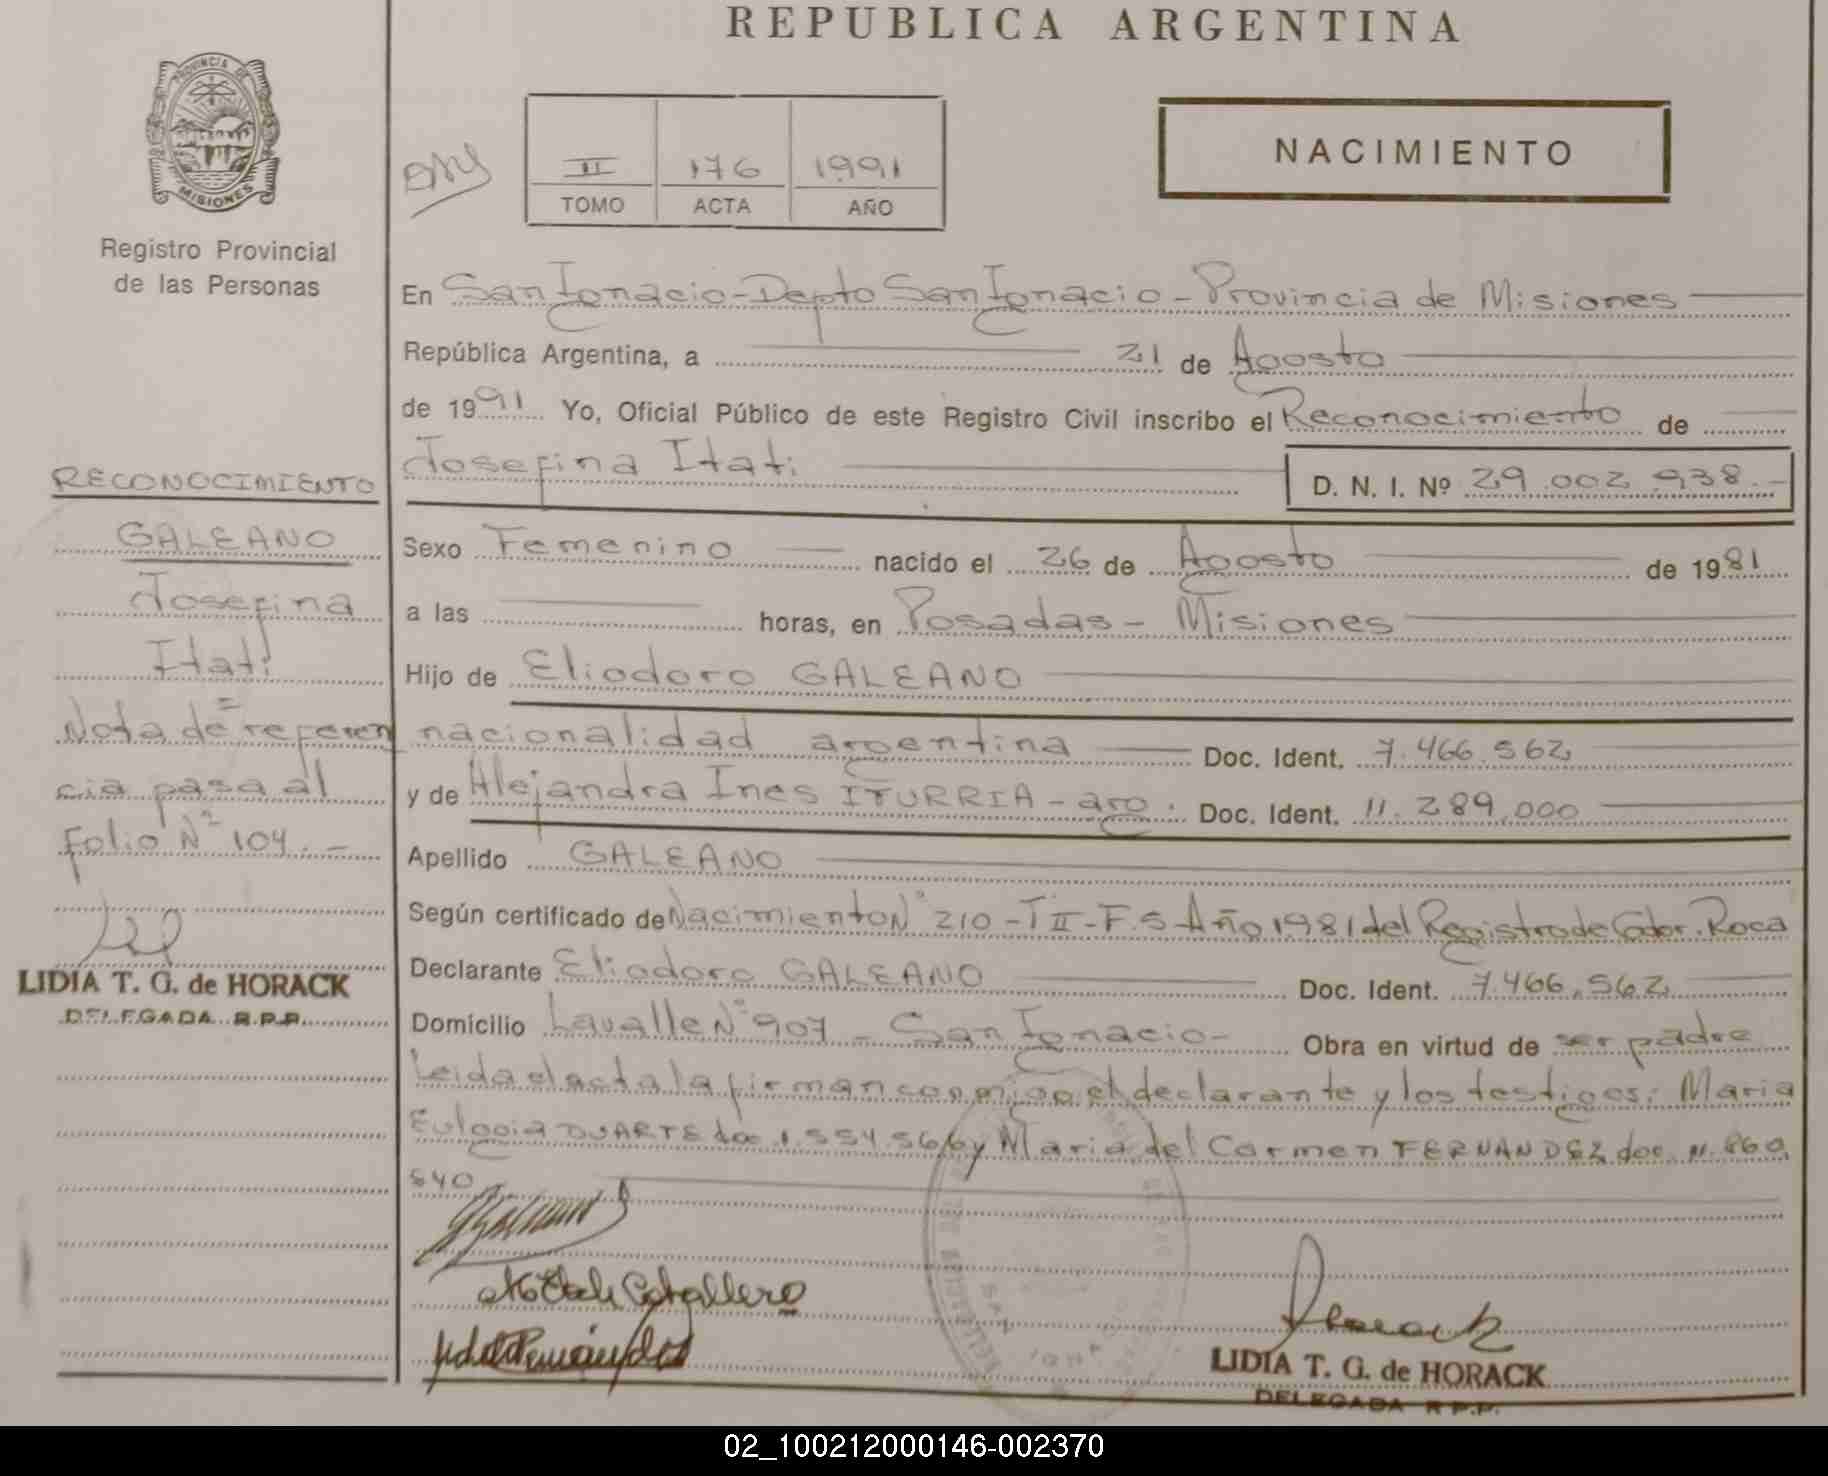 REPUBLICA ARGENTINA
PROVINCIA DE
MISIONES
Registro Provincial
de las Personas
II 176 1991
TOMO ACTA AÑO
NACIMIENTO
En San Ignacio - Depto San Ignacio - Provincia de Misiones
República Argentina, a 21 de Agosto
de 1991 Yo, Oficial Público de este Registro Civil inscribo el Reconocimiento de
Josefina Itatí D. N. I. Nº 29.002.938.-
Sexo Femenino nacido el 26 de Agosto de 1981
a las horas, en Posadas - Misiones
Hijo de Eliodoro GALEANO
nacionalidad argentina Doc. Ident. 7.466.562
y de Alejandra Ines ITURRIA - arg. Doc. Ident. 11.289.000
Apellido GALEANO
Según certificado de Nacimiento Nº 210 - T II - F. 5 - Año 1981 del Registro de Gdor. Roca
Declarante Eliodoro GALEANO Doc. Ident. 7.466.562
Domicilio Lavalle Nº 907 - San Ignacio - Obra en virtud de ser padre
Leida el acta la firman conmigo el declarante y los testigos: Maria
Eulogia DUARTE doc 1.554.566 y Maria del Carmen FERNANDEZ doc. 11.860.
840
RECONOCIMIENTO
GALEANO
Josefina
Itatí
Nota de referen
cia pasa al
Folio Nº 104.-
LIDIA T. G. de HORACK
DELEGADA R.P.P.
Caballero
Horack
LIDIA T. G. de HORACK
DELEGADA R.P.P.
02_100212000146-002370